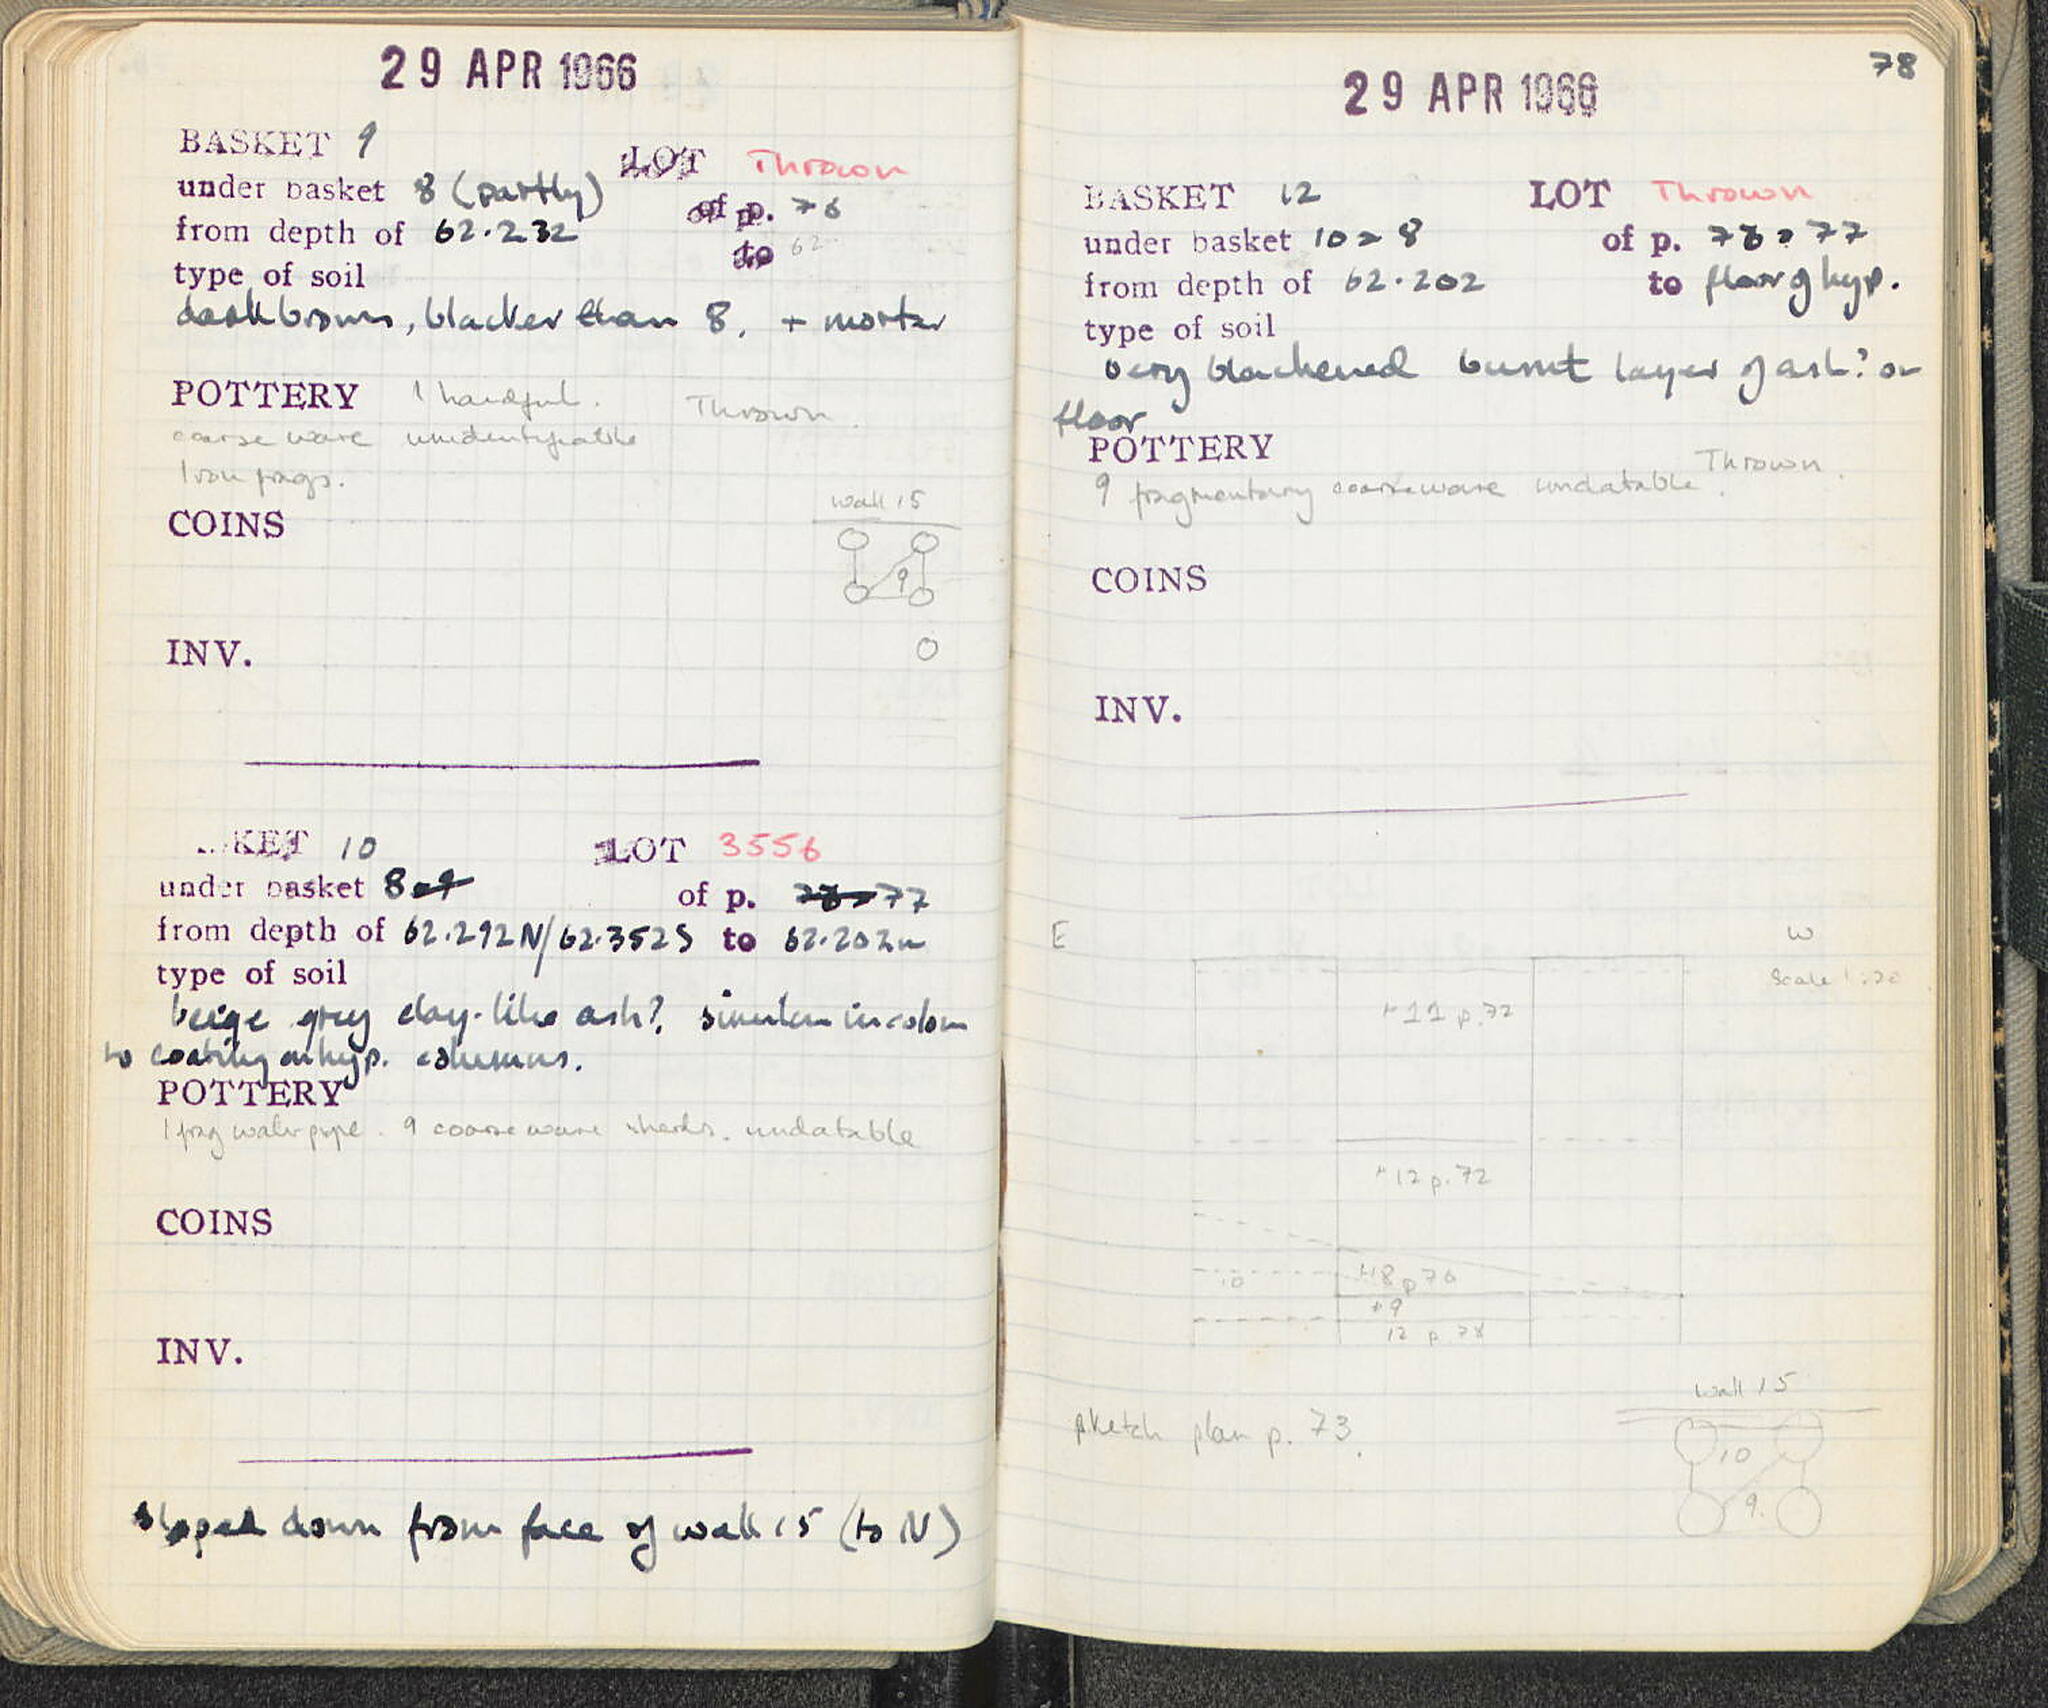 29 APR 1966
BASKET 9 LOT Thrown
under basket 8 (partly) of p. 76
from depth of 62.232 to 62.
type of soil
dark brown, blacker than 8, + mortar
POTTERY 1 handful. Thrown.
coarse ware unidentifiable
Iron frags.
COINS
wall 15
9
INV.
KET 10 LOT 3556
under basket 8 of p. 77
from depth of 62.292N/62.352S to 62.202
type of soil
beige grey clay-like ash?, similar in colour
to coating on hyp. columns.
POTTERY
1 frag water pipe. 9 coarse ware sherds. undatable
COINS
INV.
sloped down from face of wall 15 (to N)
78
29 APR 1966
BASKET 12 LOT Thrown
under basket 10 > 8 of p. 78 > 77
from depth of 62.202 to floor of hyp.
type of soil
very blackened burnt layer of ash? on
floor
POTTERY Thrown.
9 fragmentary coarseware undatable.
COINS
INV.
E W
Scale 1:20
11 p.72
12 p.72
10
8 p 76
9
12 p 78
sketch plan p. 73.
wall 15
10
9.